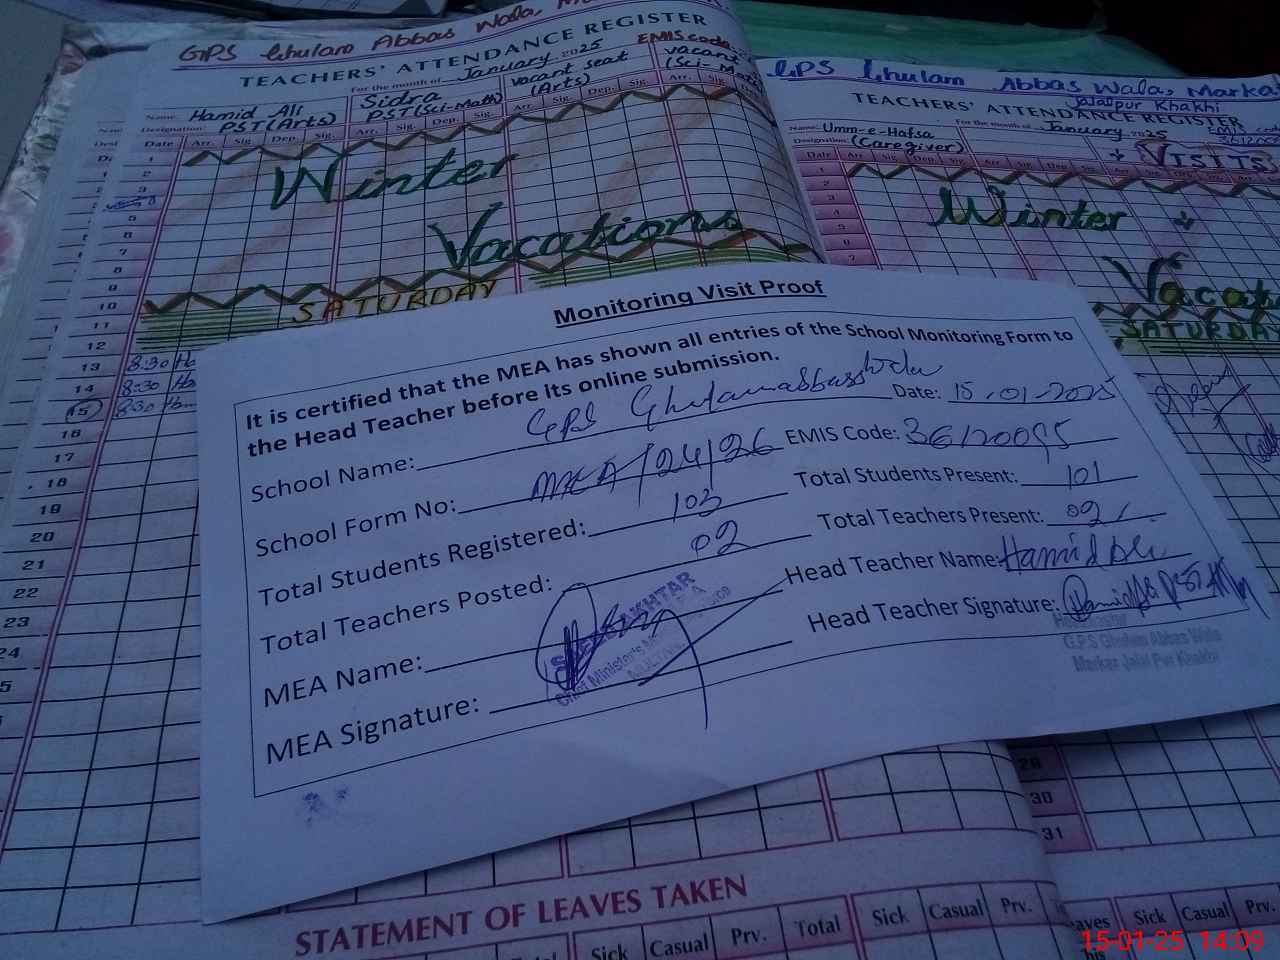 GPS Ghulam Abbas Wala,
TEACHERS' ATTENDANCE REGISTER
EMIS code
For the month of January 2025
Name: Hamid Ali
Sidra
vacant seat
vacant
Designation: PST(Arts)
PST(Sci-Math)
(Arts)
(Sci-Math)
Date Arr. Sig. Dep. Sig. Arr. Sig. Dep. Sig. Arr. Sig. Dep. Sig. Arr. Sig.
Winter
Vacations
SATURDAY
1
2
3
5
6
7
8
9
10
11
12
13 8:30
14 8:30
15 8:30
16
17
18
19
20
21
22
23
24
GPS Ghulam Abbas Wala, Marka
Jalalpur Khakhi
TEACHERS' ATTENDANCE REGISTER
Name: Umm-e-Hafsa For the month of January 2025 EMIS
Designation: (Caregiver)
VISITS
Date Arr. Sig. Dep. Sig. Arr. Sig. Dep. Sig.
1
2
3
4
5
6
7
Winter
Vacat
SATURDAY
Monitoring Visit Proof
It is certified that the MEA has shown all entries of the School Monitoring Form to
the Head Teacher before Its online submission.
School Name: GPS Ghulamabbasswala Date: 15-01-2025
School Form No: MEA/24/26 EMIS Code: 36120095
Total Students Registered: 103 Total Students Present: 101
Total Teachers Posted: 02 Total Teachers Present: 02
MEA Name: Head Teacher Name: Hamid Ali
MEA Signature: Head Teacher Signature:
AKHTAR
Chief Minister's
MULTAN
G.P.S Ghulam Abbas Wala
Markaz Jalal Pur Khakhi
29
30
31
STATEMENT OF LEAVES TAKEN
Sick Casual Prv. Total Sick Casual Prv.
Sick Casual Prv.
Sick Casual Prv.
15-01-25 14:09